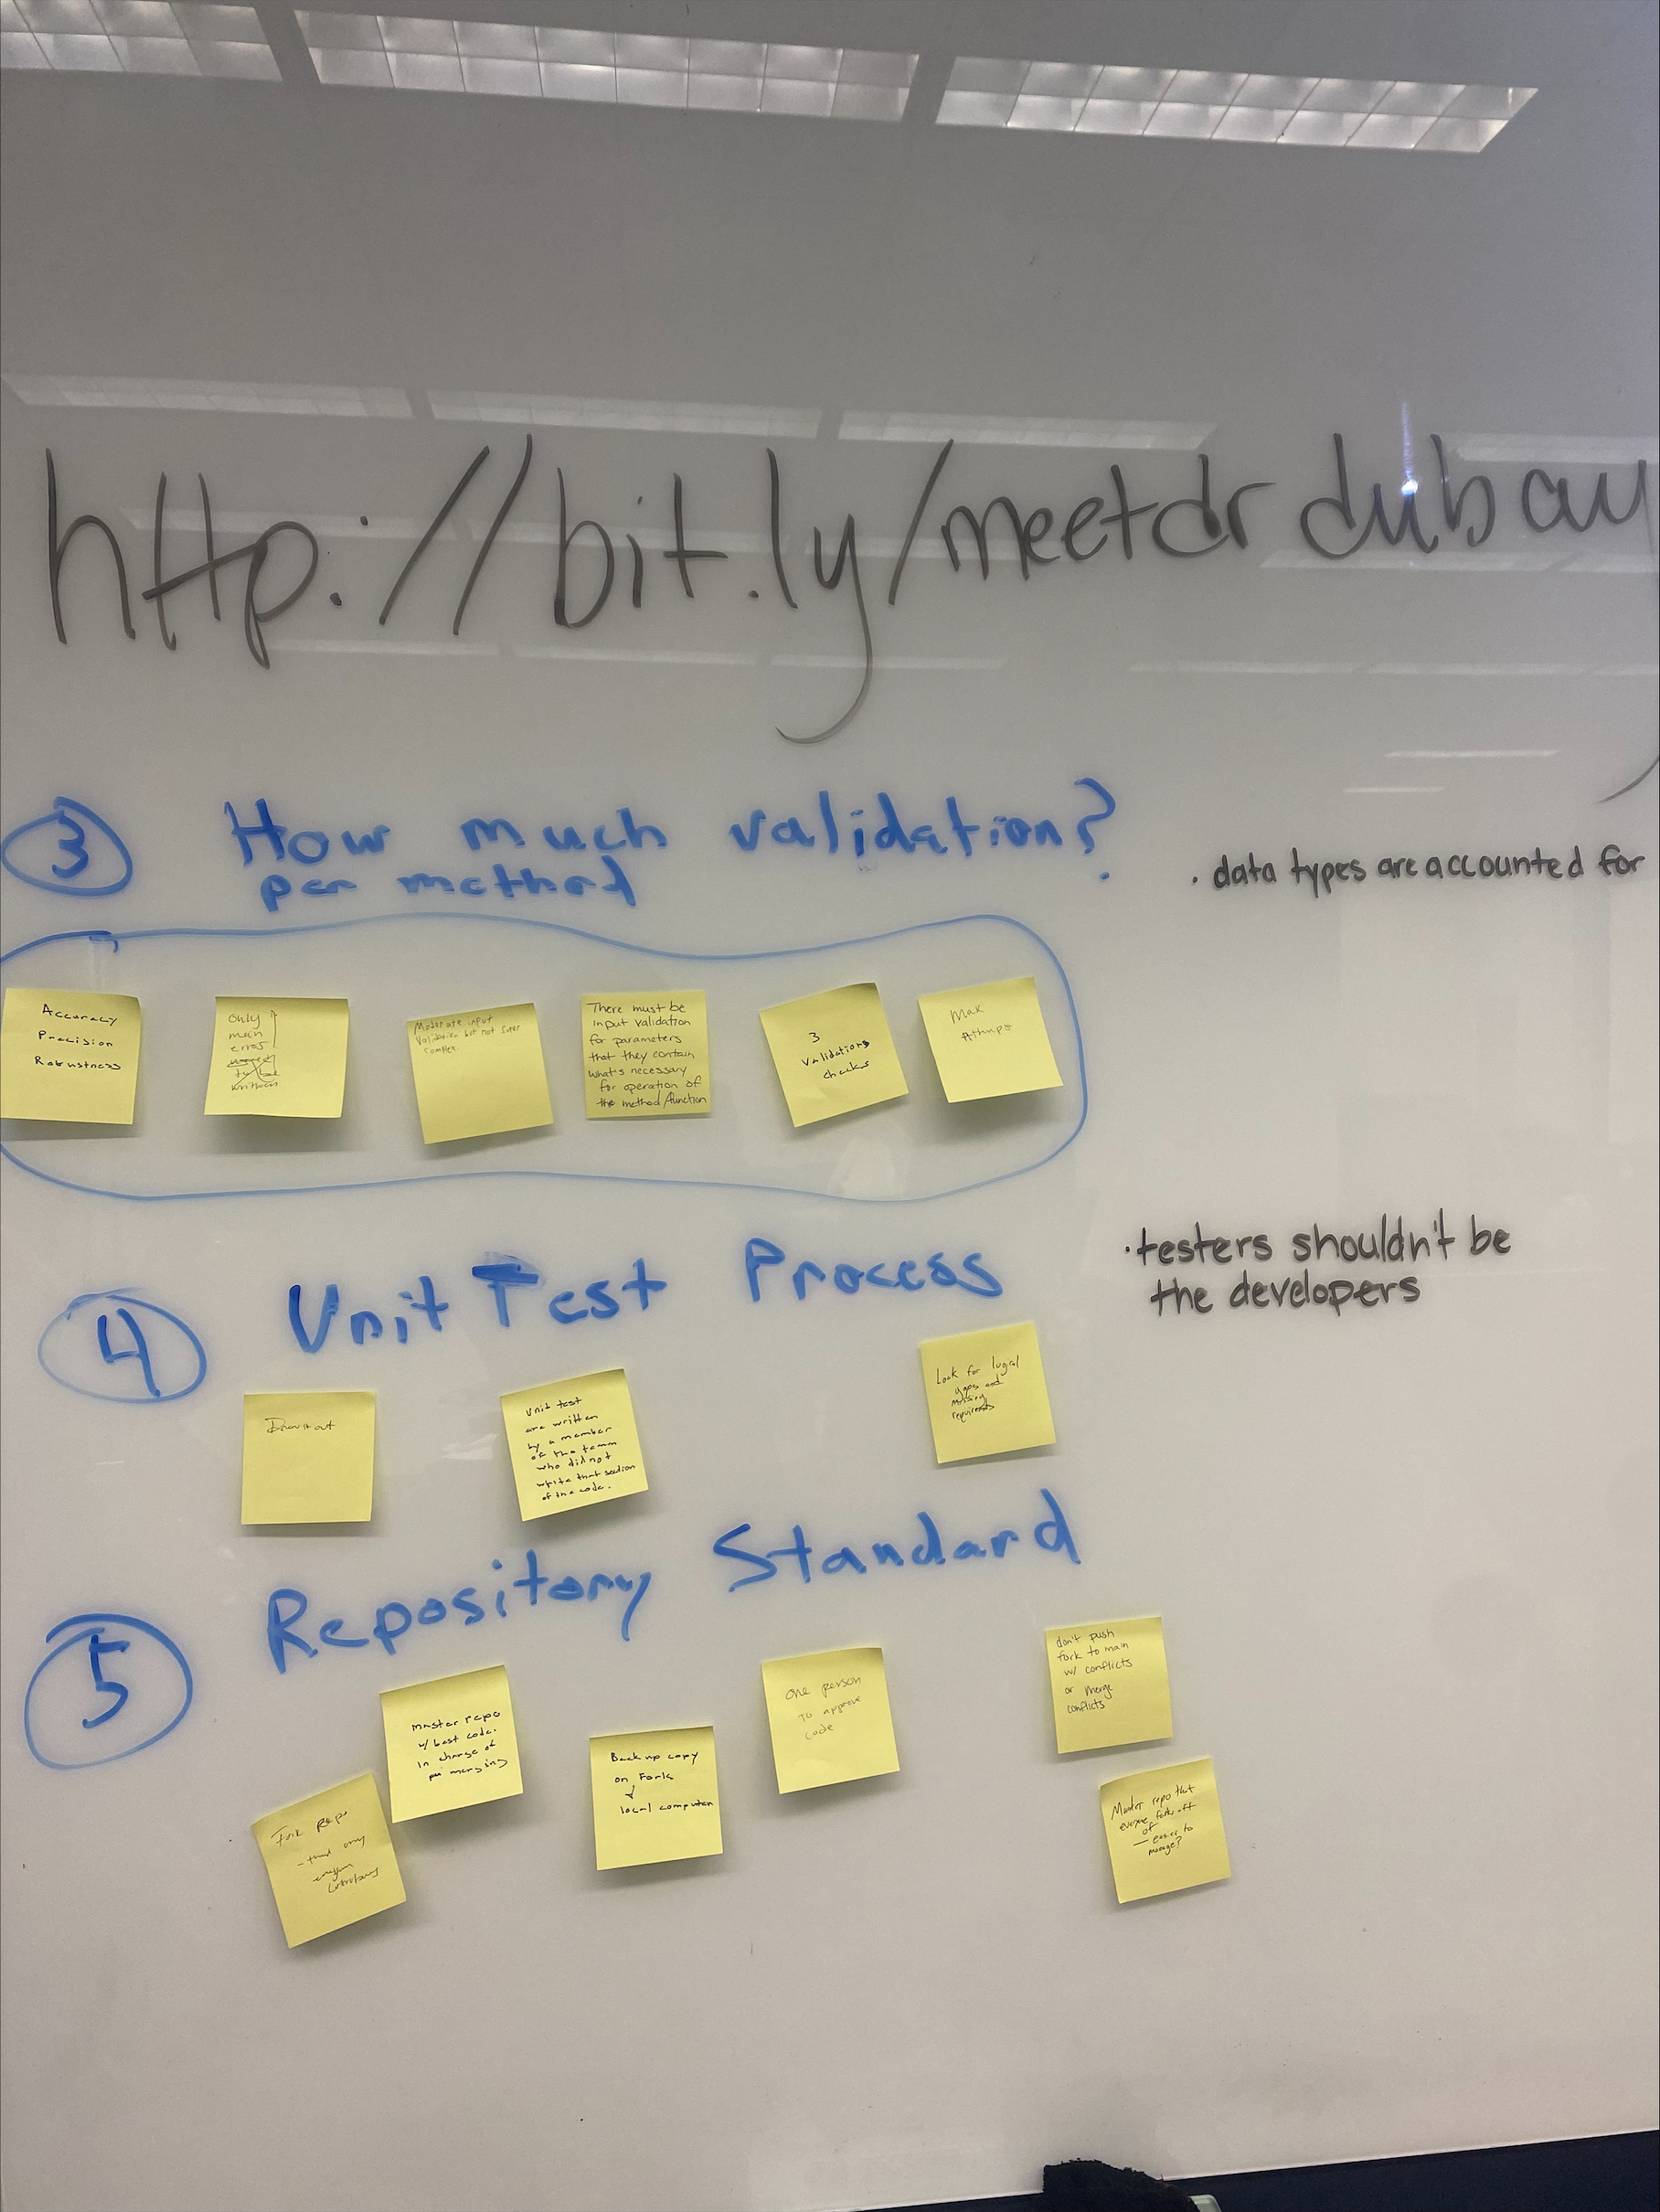 http://bit.ly/meetdrdubay
3
How much validation?
per method
. data types are accounted for
Accuracy
Precision
Robustness
only
main
error
Moderate input
validation but not super
complex.
There must be
input validation
for parameters
that they contain
what's necessary
for operation of
the method/function
3
validations
checks
Max
4
Unit Test Process
·testers shouldn't be
the developers
Draw it out
Unit test
are written
by a member
of the team
who did not
write that section
of the code.
Look for logical
gaps and
missing
5
Repository Standard
Fork Repo
master repo
w/ best code.
In charge of
merging
Back up copy
on Fork
↓
local computer
one person
to approve
code
don't push
fork to main
w/ conflicts
or merge
conflicts
Master repo that
everyone forks off
of
— easier to
manage?